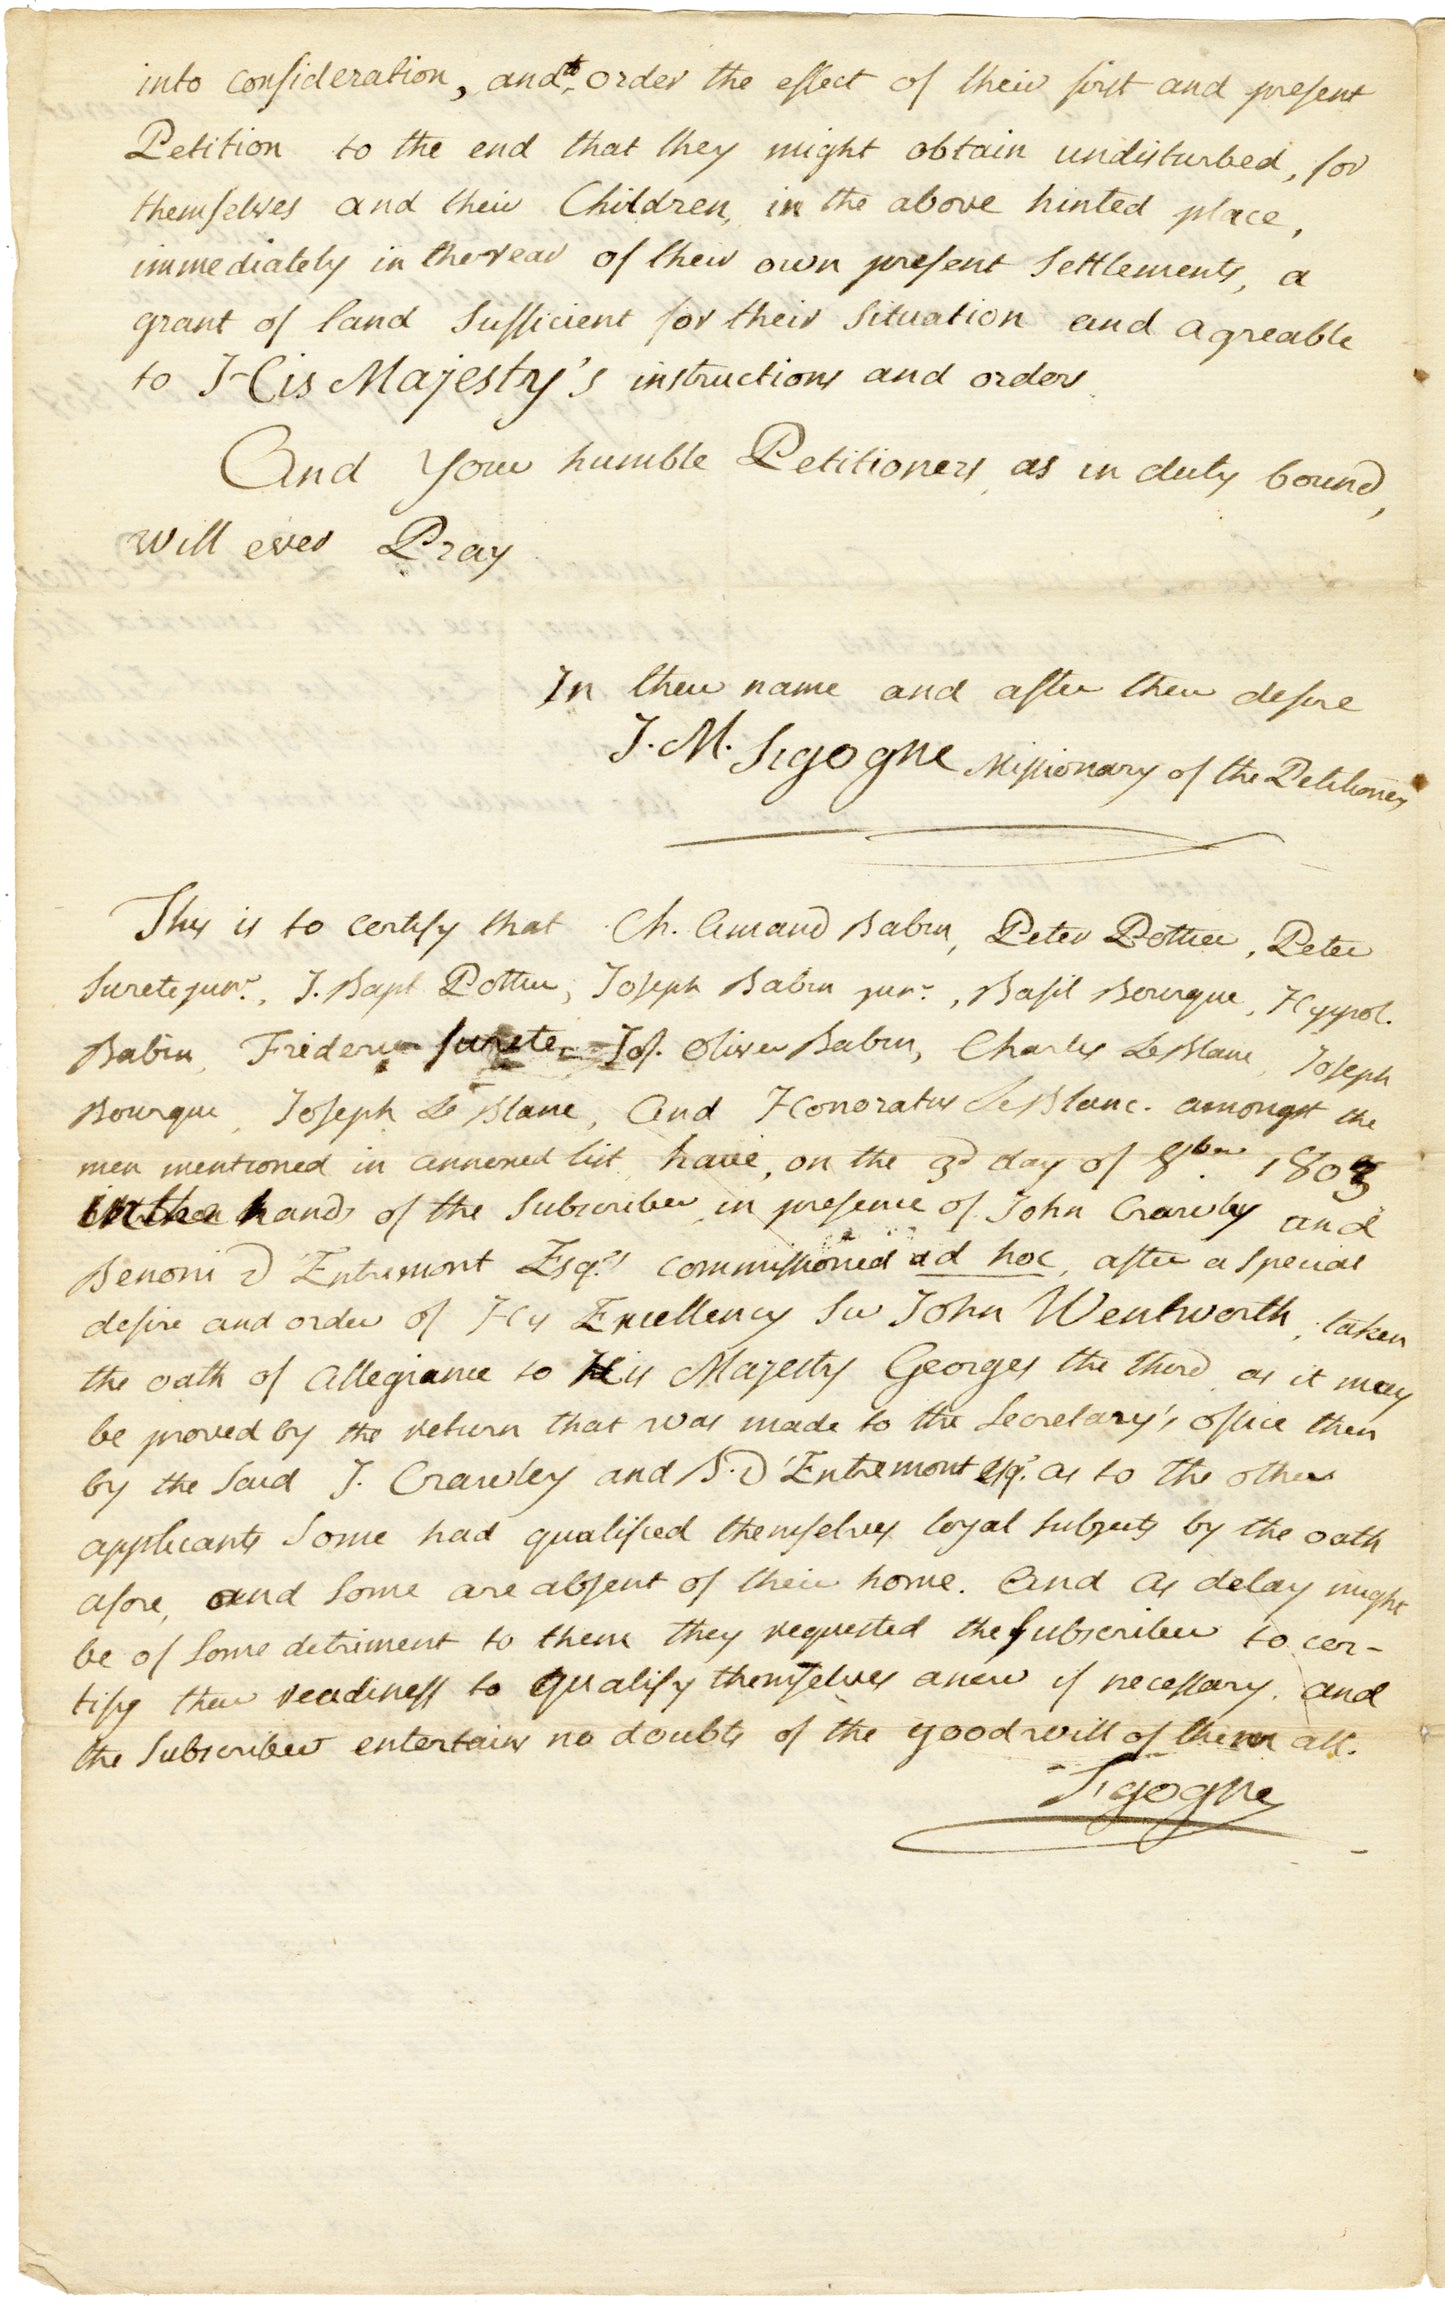 into consideration, and to order the effect of their first and present
Petition to the end that they might obtain undisturbed, for
themselves and their Children, in the above hinted place,
immediately in the rear of their own present Settlements, a
grant of land Sufficient for their Situation and agreable
to His Majesty's instructions and orders.
And Your humble Petitioners, as in duty bound,
will ever Pray
In their name and after their desire
J. M. Sigogne Missionary of the Petitioners
This is to certify that Ch. Amand Babin, Peter Pottier, Peter
Surete junr., J. Bapt Pottier, Joseph Babin junr., Basil Bourque, Hyppol.
Babin, Frideric Surete, Jos. Oliver Babin, Charles LeBlanc, Joseph
Bourque, Joseph Le Blanc, And Honoratus LeBlanc. amongst the
men mentioned in annexed list have, on the 3d day of 8ber 1803
in the hands of the Subscriber, in presence of John Crawley and
Benoni D'Entremont Esqrs commissioned ad hoc, after a special
desire and order of His Excellency Sir John Wentworth, taken
the oath of Allegiance to His Majesty Georges the third as it may
be proved by the return that was made to the Secretary's office then
by the Said J. Crawley and B. D'Entremont esqr. as to the other
applicants Some had qualified themselves loyal Subjects by the oath
afore, and Some are absent of their home. And as delay might
be of Some detriment to them they requested the Subscriber to cer-
tify their readiness to qualify themselves anew if necessary. and
the Subscriber entertains no doubts of the good will of them all.
Sigogne